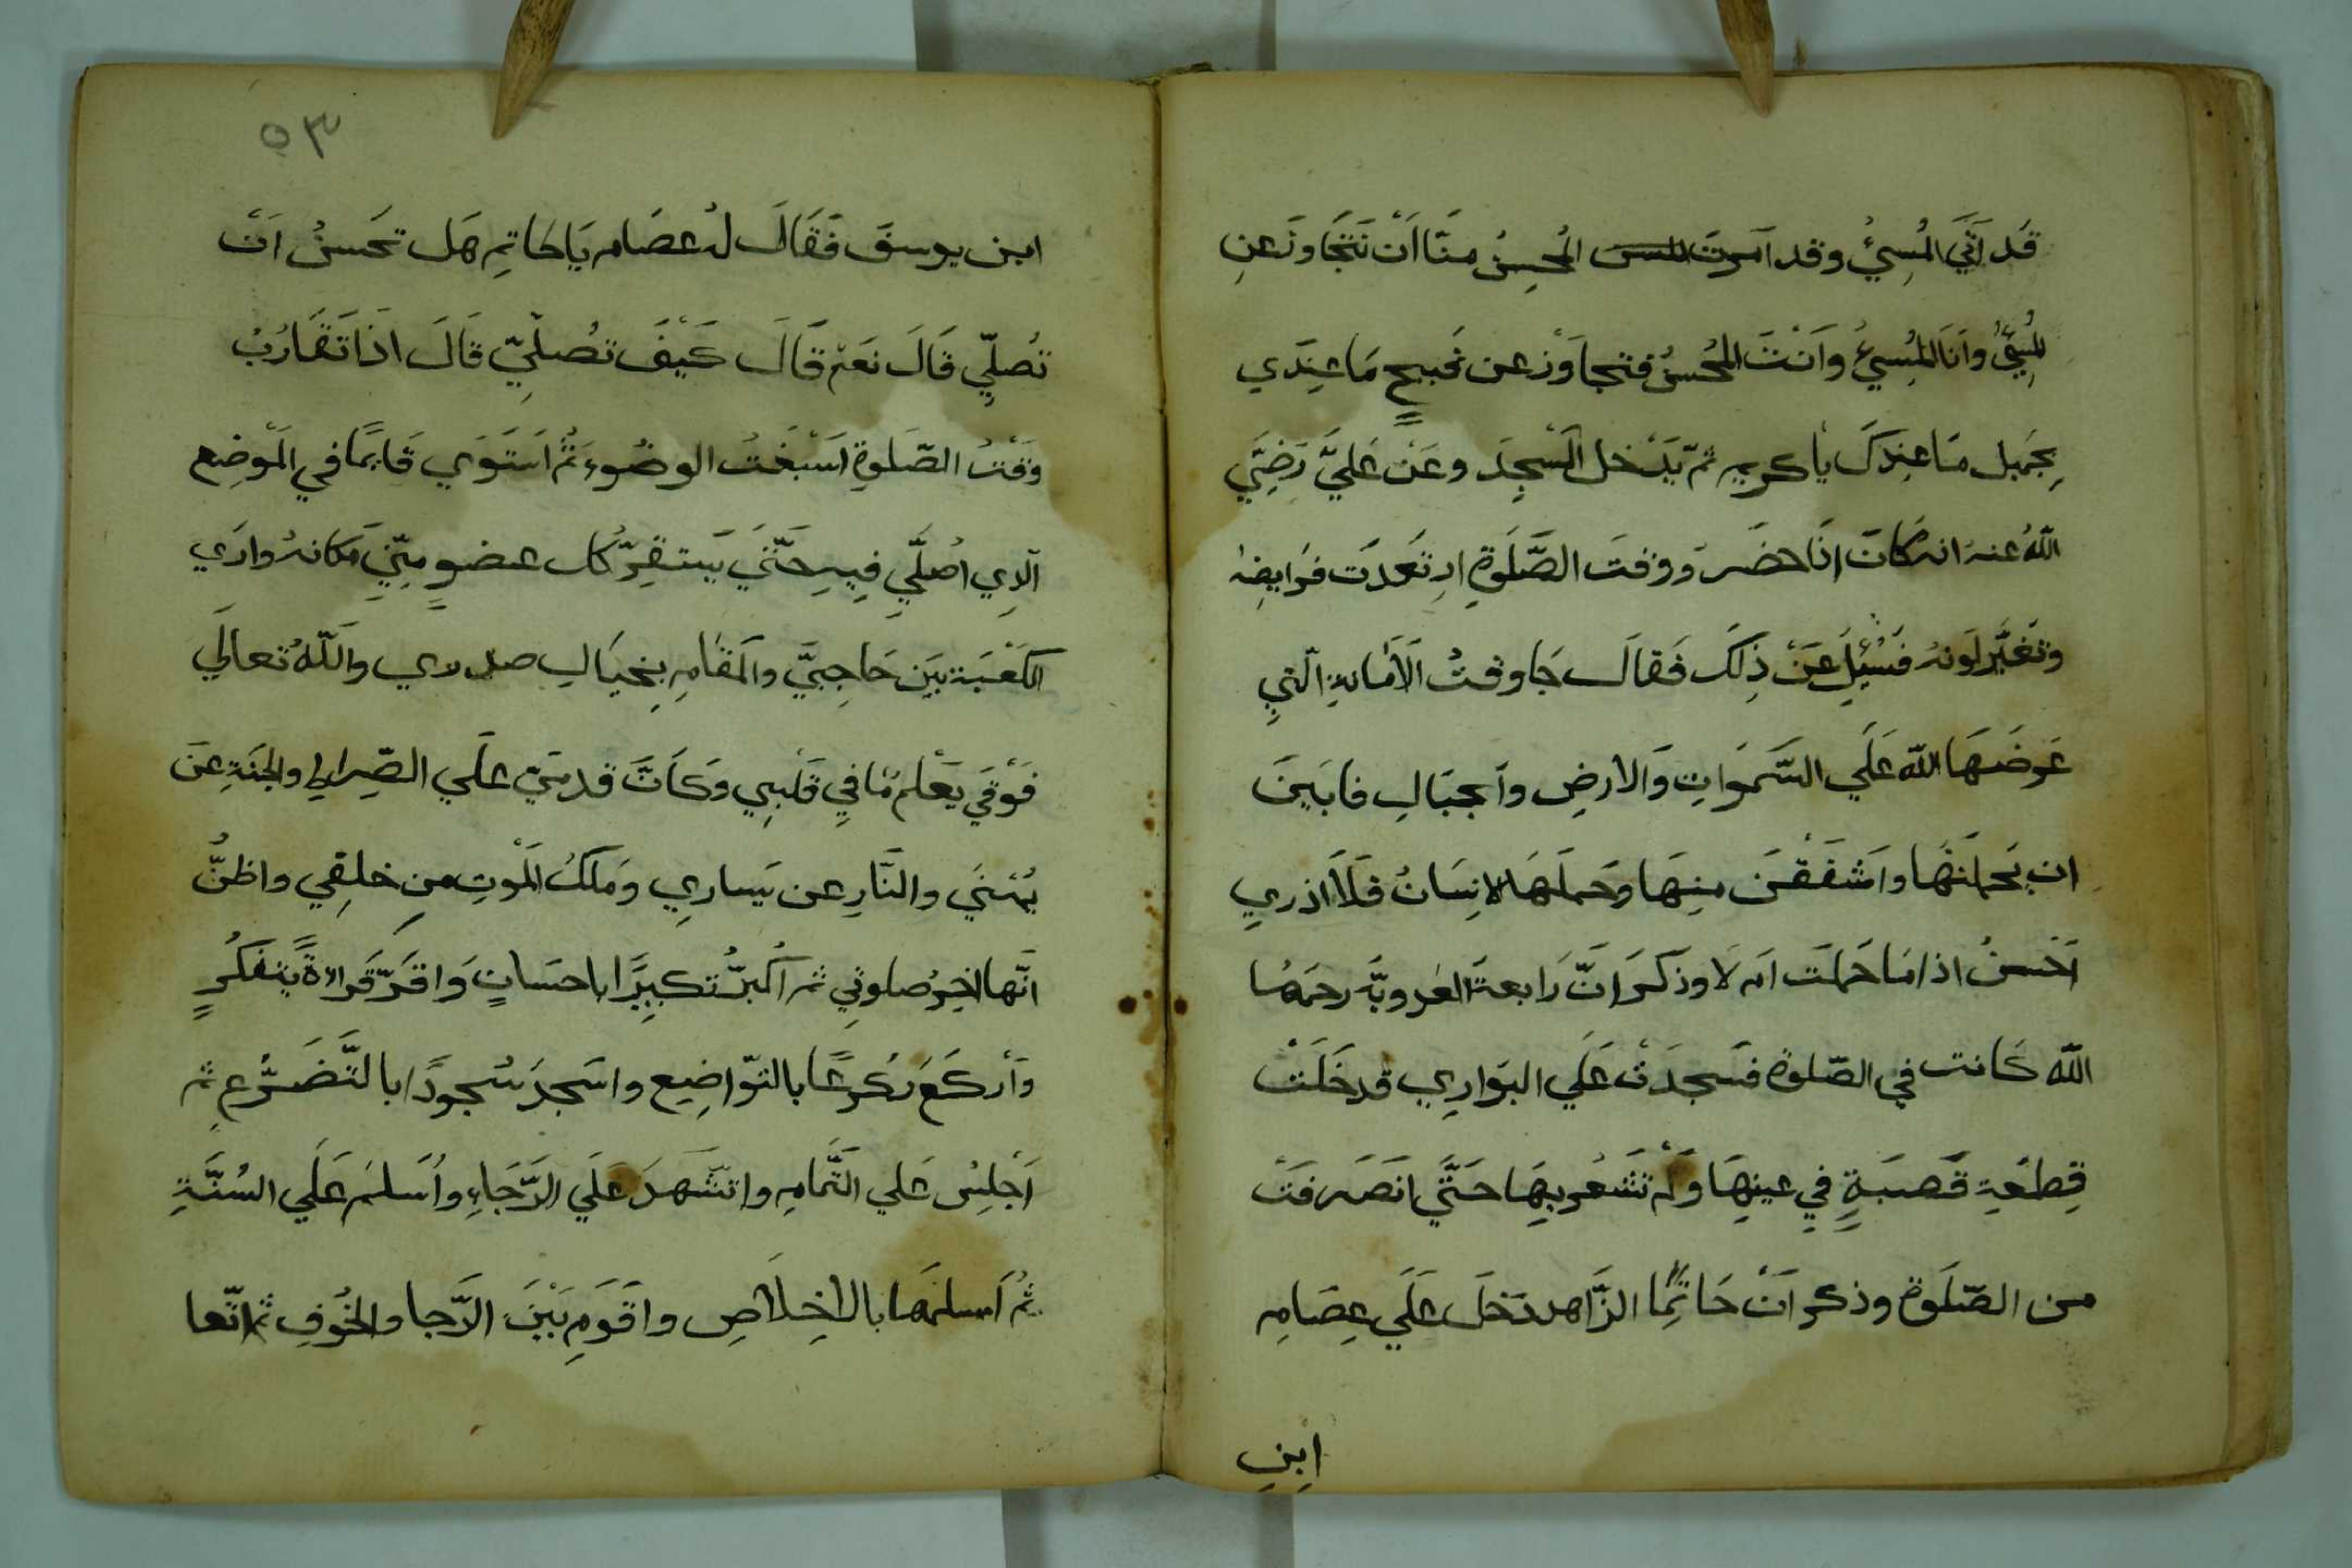 قَد اَتَي المُسِئُ وقد اَمَرتَ المُحسِنُ منَّا اَن نَتَجَاوَزَعنِ
المُسِئُ وانَا المُسِئُ وَاَنْتَ المُحسِنُ فتجاوَزْ عن قَبيحٍ مَا عِنَدي
بِجَميل مَا عِندَكَ يا كريم ثمّ يَدْخل المَسْجِدَ وعَنْ عَليّ رَضِيَ
اللّهُ عنهُ انه كَانَ اِذَا حضَرَ ووقتَ الصَّلَوةِ ارتَعدَت فرَايضِهُ
وتَغَيَّر لَونهُ فَسُئِلَ عَنْ ذِلكَ فَقالَ جَا وقتُ الاَمَانةِ الّتِي
عَرضَهَا اللّه عَلَي السَّمَوَاتِ وَالارضِ وَاَلجبَالِ فابَينَ
ان يَحملَنَها وَاَشفَقْنَ مِنهَا وَحَملَهَا الانِسَانُ فَلَا اَدري
اَحَسنُ اذا مَا حَملَت اَم لَا وذَكَرَ انَّ رَابعةَ العَدويَّه رحمَها
اللّه كَانت في الصّلوة فسَجدَتْ عَلَي البَوارِي فدخَلَتْ
قِطعَةِ قَصبَةٍ فيِ عينِهَا وَلَم تَشعُر بِهَا حَتَّي انصَرفَتْ
من الصّلَوة وذكر اَنْ حَاتِمًا الزَّاهد دَخلَ عَلَي عِصَامِ
ابِنِ
٥٣
ابن يوسفَ فَقَالَ لهُ عصَام يَا حَاتِم هَل تَحَسنُ اَنْ
تُصلِّي قَالَ نعَم قَالَ كَيْفَ تُصلِّيّ قَالَ اذَا تَقَارُبُ
وَقْتُ الصّلَوةِ اَسَبْغتُ الوضُوءَ ثُمُ اسَتَوي قَايمًا في المَوْضِع
اَلّذِي اُصلِّي فِيهِ حَتَّي يَستَقِرّ كُل عضوٍ مِنّيِ مَكانهُ وارَي
الكَعْبَة بَين حَاجِبَيَّ وَالمَقامِ بِخيَالِ صدري واللّهُ تعالَي
فَوْقيِ يَعْلم مَا فيِ قَلْبِي وَكَاَنَّ قدميّ عَلَي الصِّراطِ والجَنةِ عَنَ
يُمنَي والنَّارِ عن يَسارِي وَملَكُ المَوْتِ مِن خلفِي واظنُّ
انَّها اخِر صلوتِي ثمّ اُكَبِّرُ تكبِيرًا باحسَانٍ وَاقرَّ قَراءةً بِتفَكُرٍ
وَاَركَعَ رُكوعًا بالتوّاضِع واسَجدَ سُجودًا با لتَّضَرُّعِ ثم
اَجْلِسُ عَلي التَّمامِ واتشَهدَ عَلَي الرَّجَاءِ وَاُسَلمَ عَلَي السُنَّةِ
ثُم اَسلمَها بالاخِلَاصِ واقَومِ بَيْنَ الرَّجا والخُوفِ ثم اتّعا